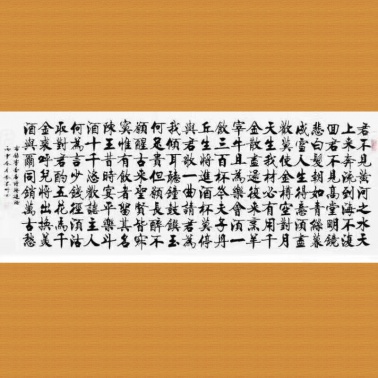 君不見黃河之水天
上來奔流到海不復
回君不見高堂明鏡
悲白髮朝如青絲暮
成雪人生得意須盡
歡莫使金樽空對月
天生我材必有用千
金散盡還復來烹羊
宰牛且為樂會須一
飲三百杯岑夫子丹
丘生將進酒杯莫停
與君歌一曲請君為
我傾耳聽鐘鼓饌玉
何足貴但願長醉不
願醒古來聖賢皆寂
寞惟有飲者留其名
陳王昔時宴平樂斗
酒十千恣歡謔主人
何為言少錢徑須沽
取對君酌五花馬千
金裘呼兒將出換美
酒與爾同銷萬古愁